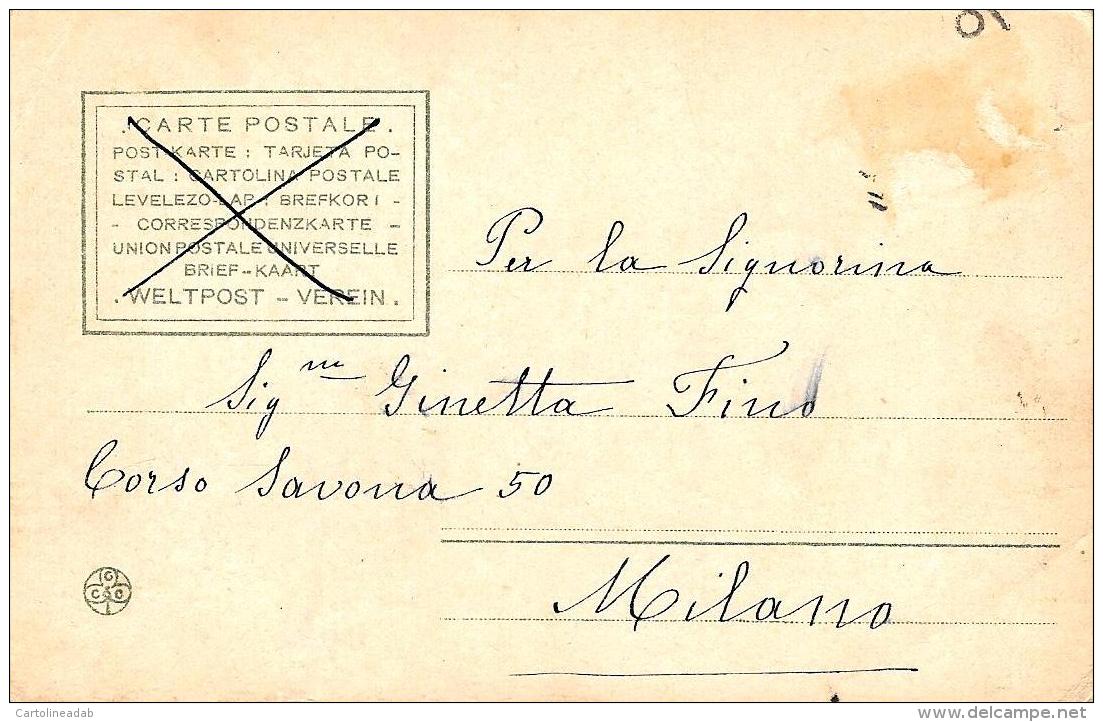 . CARTE POSTALE .
POST-KARTE : TARJETA PO-
STAL : CARTOLINA POSTALE
LEVELEZO-LAP : BREFKORT -
- CORRESPONDENZKARTE -
UNION POSTALE UNIVERSELLE
BRIEF-KAART
. WELTPOST - VEREIN .
Per la Signorina
Sig na Ginetta Fino
Corso Savona 50
Milano
Cartolineadab
www.delcampe.net